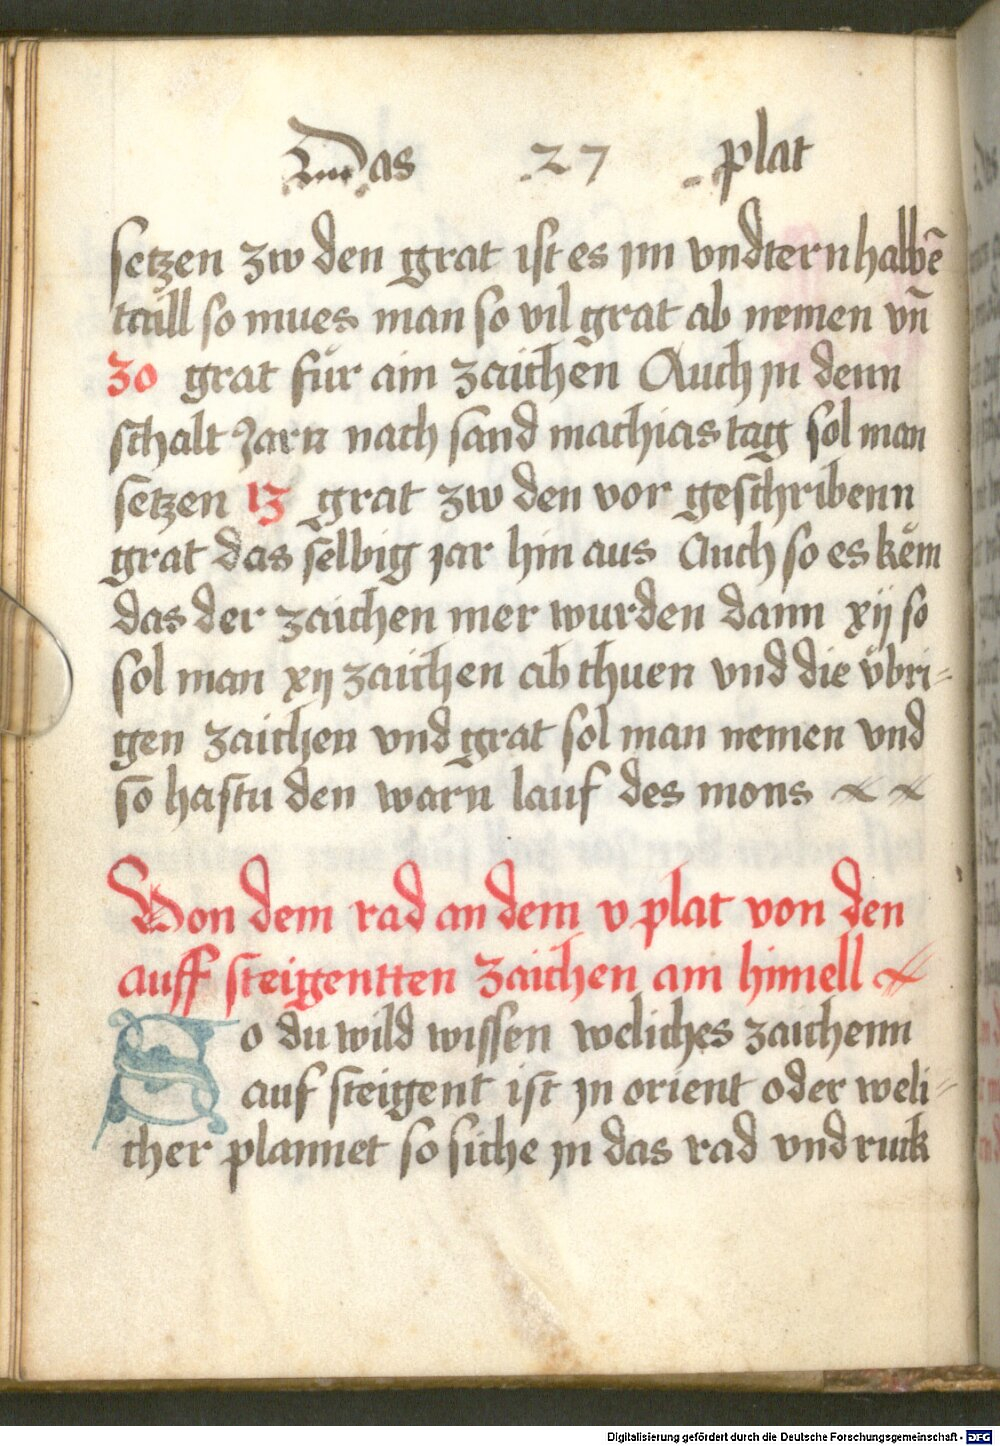 Das 27 plat
setzen zw den grat ist es jm vndtern halbē
taill so mues man so vil grat ab nemen vn̄
30 grat fúr ain zaichen̄ Auch jn denn
schalt Jarn nach sand mathias tag sol man
setzen 13 grat zw den vor geschribenn
grat das selbig jar hin aus Auch so es kem̊
das der zaichen mer wurden dann xij so
sol man xij zaichen ab thuen vnd die v̊bri-
gen zaichen vnd grat sol man nemen vnd
so hastu den warn lauf des mons
Von dem rad an dem v plat von den
auff steigentten zaichen am himell
So du wild wissenweliches zaichenn
auf steigent ist jn orient oder weli-
cher plannet so siche jn das rad vnd ruck
Digitalisierung gefördert durch die Deutsche Forschungsgemeinschaft - DFG